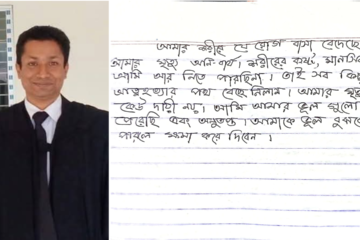 আমার শরীরে যে রোগ বাসা বেঁধেছে
আমার মৃত্যু অনিবার্য। শরীরের কষ্ট, মানসিক
আমি আর নিতে পারছিনা। তাই সব কিছু
আত্মহত্যার পথ বেছে নিলাম। আমার মৃত্যু
কেউ দায়ী নয়। আমি আমার ভুল গুলো
পেরেছি এবং অনুতপ্ত। আমাকে ভুল বুঝবেন
পারলে ক্ষমা করে দিবেন।